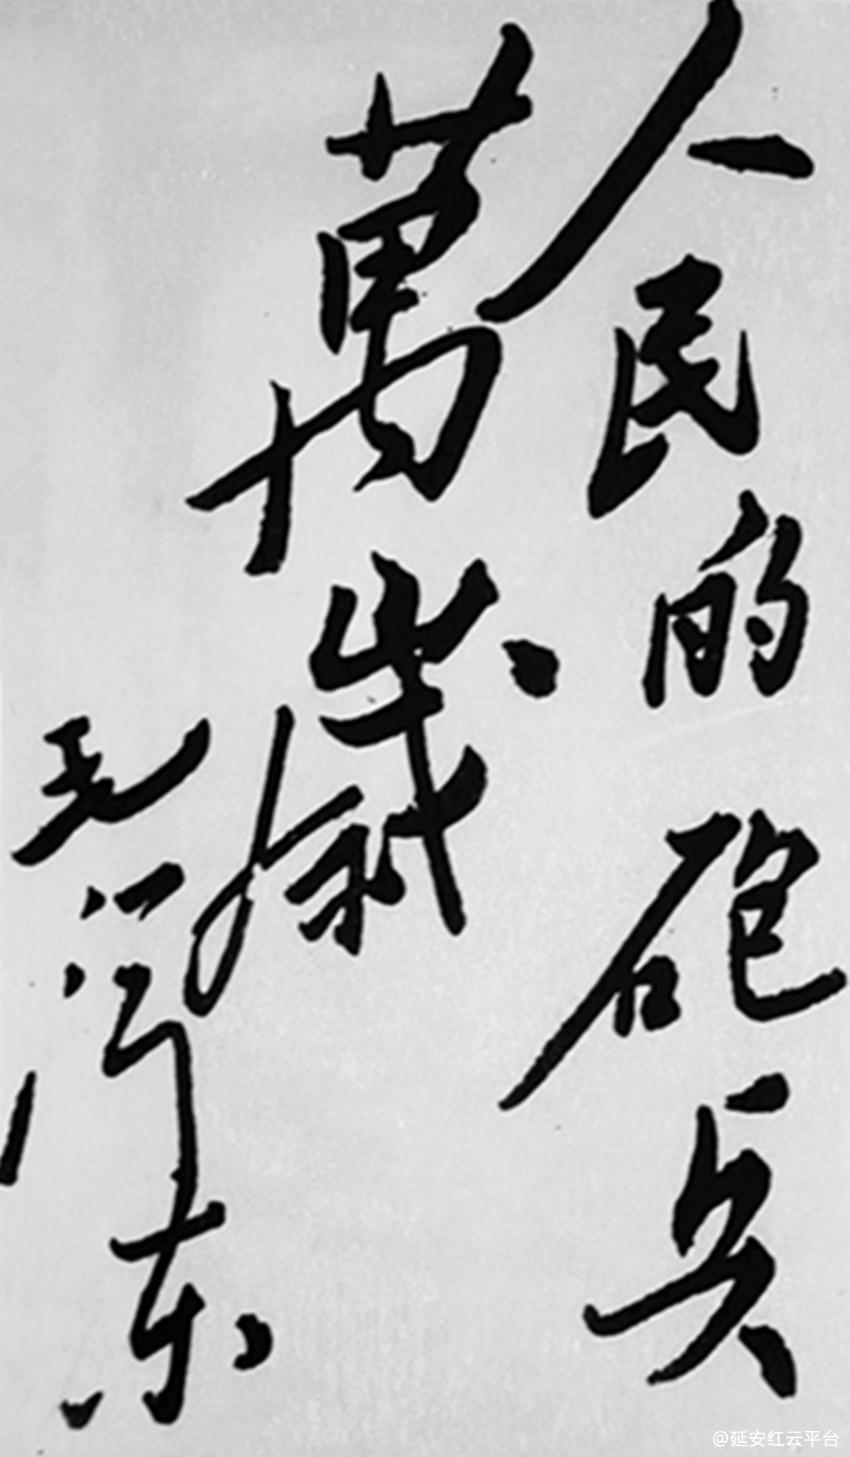 人民的砲兵
萬歲
毛泽东
@延安红云平台